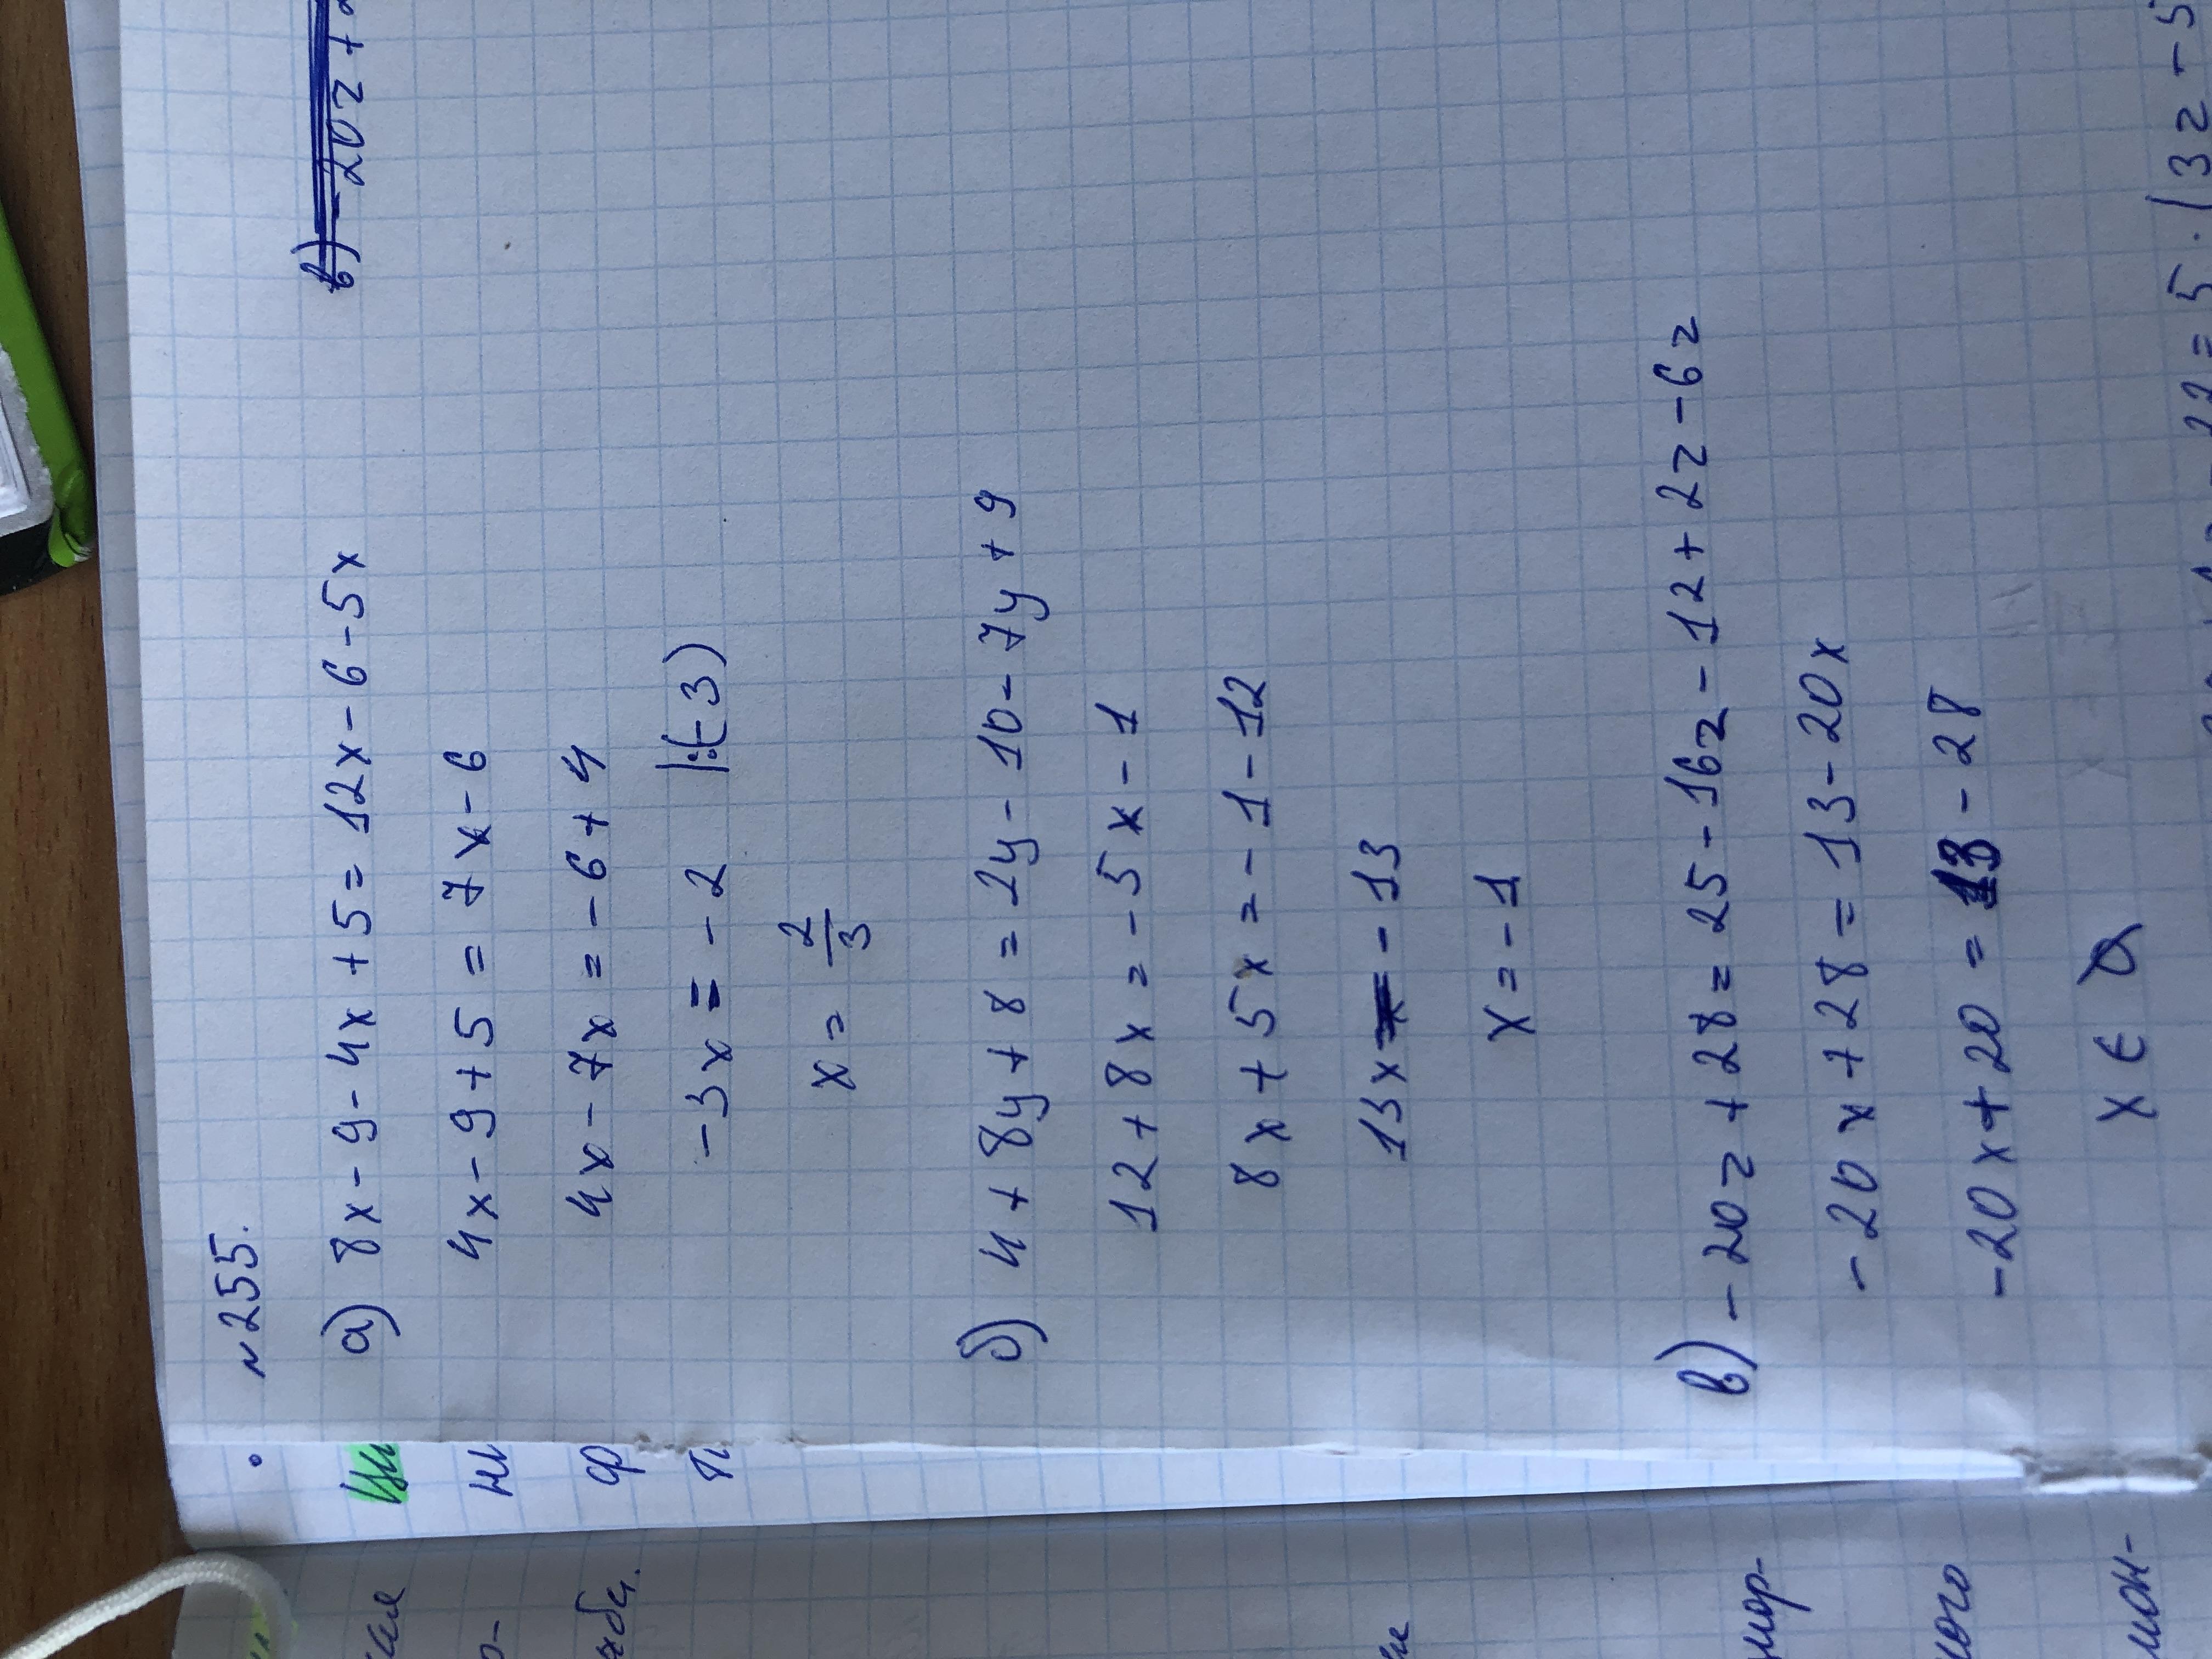 №255.
а) 8x - 9 - 4x + 5 = 12x - 6 - 5x
4x - 9 + 5 = 7x - 6
4x - 7x = - 6 + 4
- 3x = - 2 |:(-3)
x = 2/3
б) 4 + 8y + 8 = 2y - 10 - 7y + 9
12 + 8x = - 5x - 1
8x + 5x = - 1 - 12
13x = - 13
x = - 1
в) - 20z + 28 = 25 - 16z - 12 + 2z - 6z
- 20x + 28 = 13 - 20x
- 20x + 20 = 13 - 28
x ∈ ∅
= 5 · (3z - 5
в) - 20z +
ни
ф
жбе.
мор-
ного
мон-